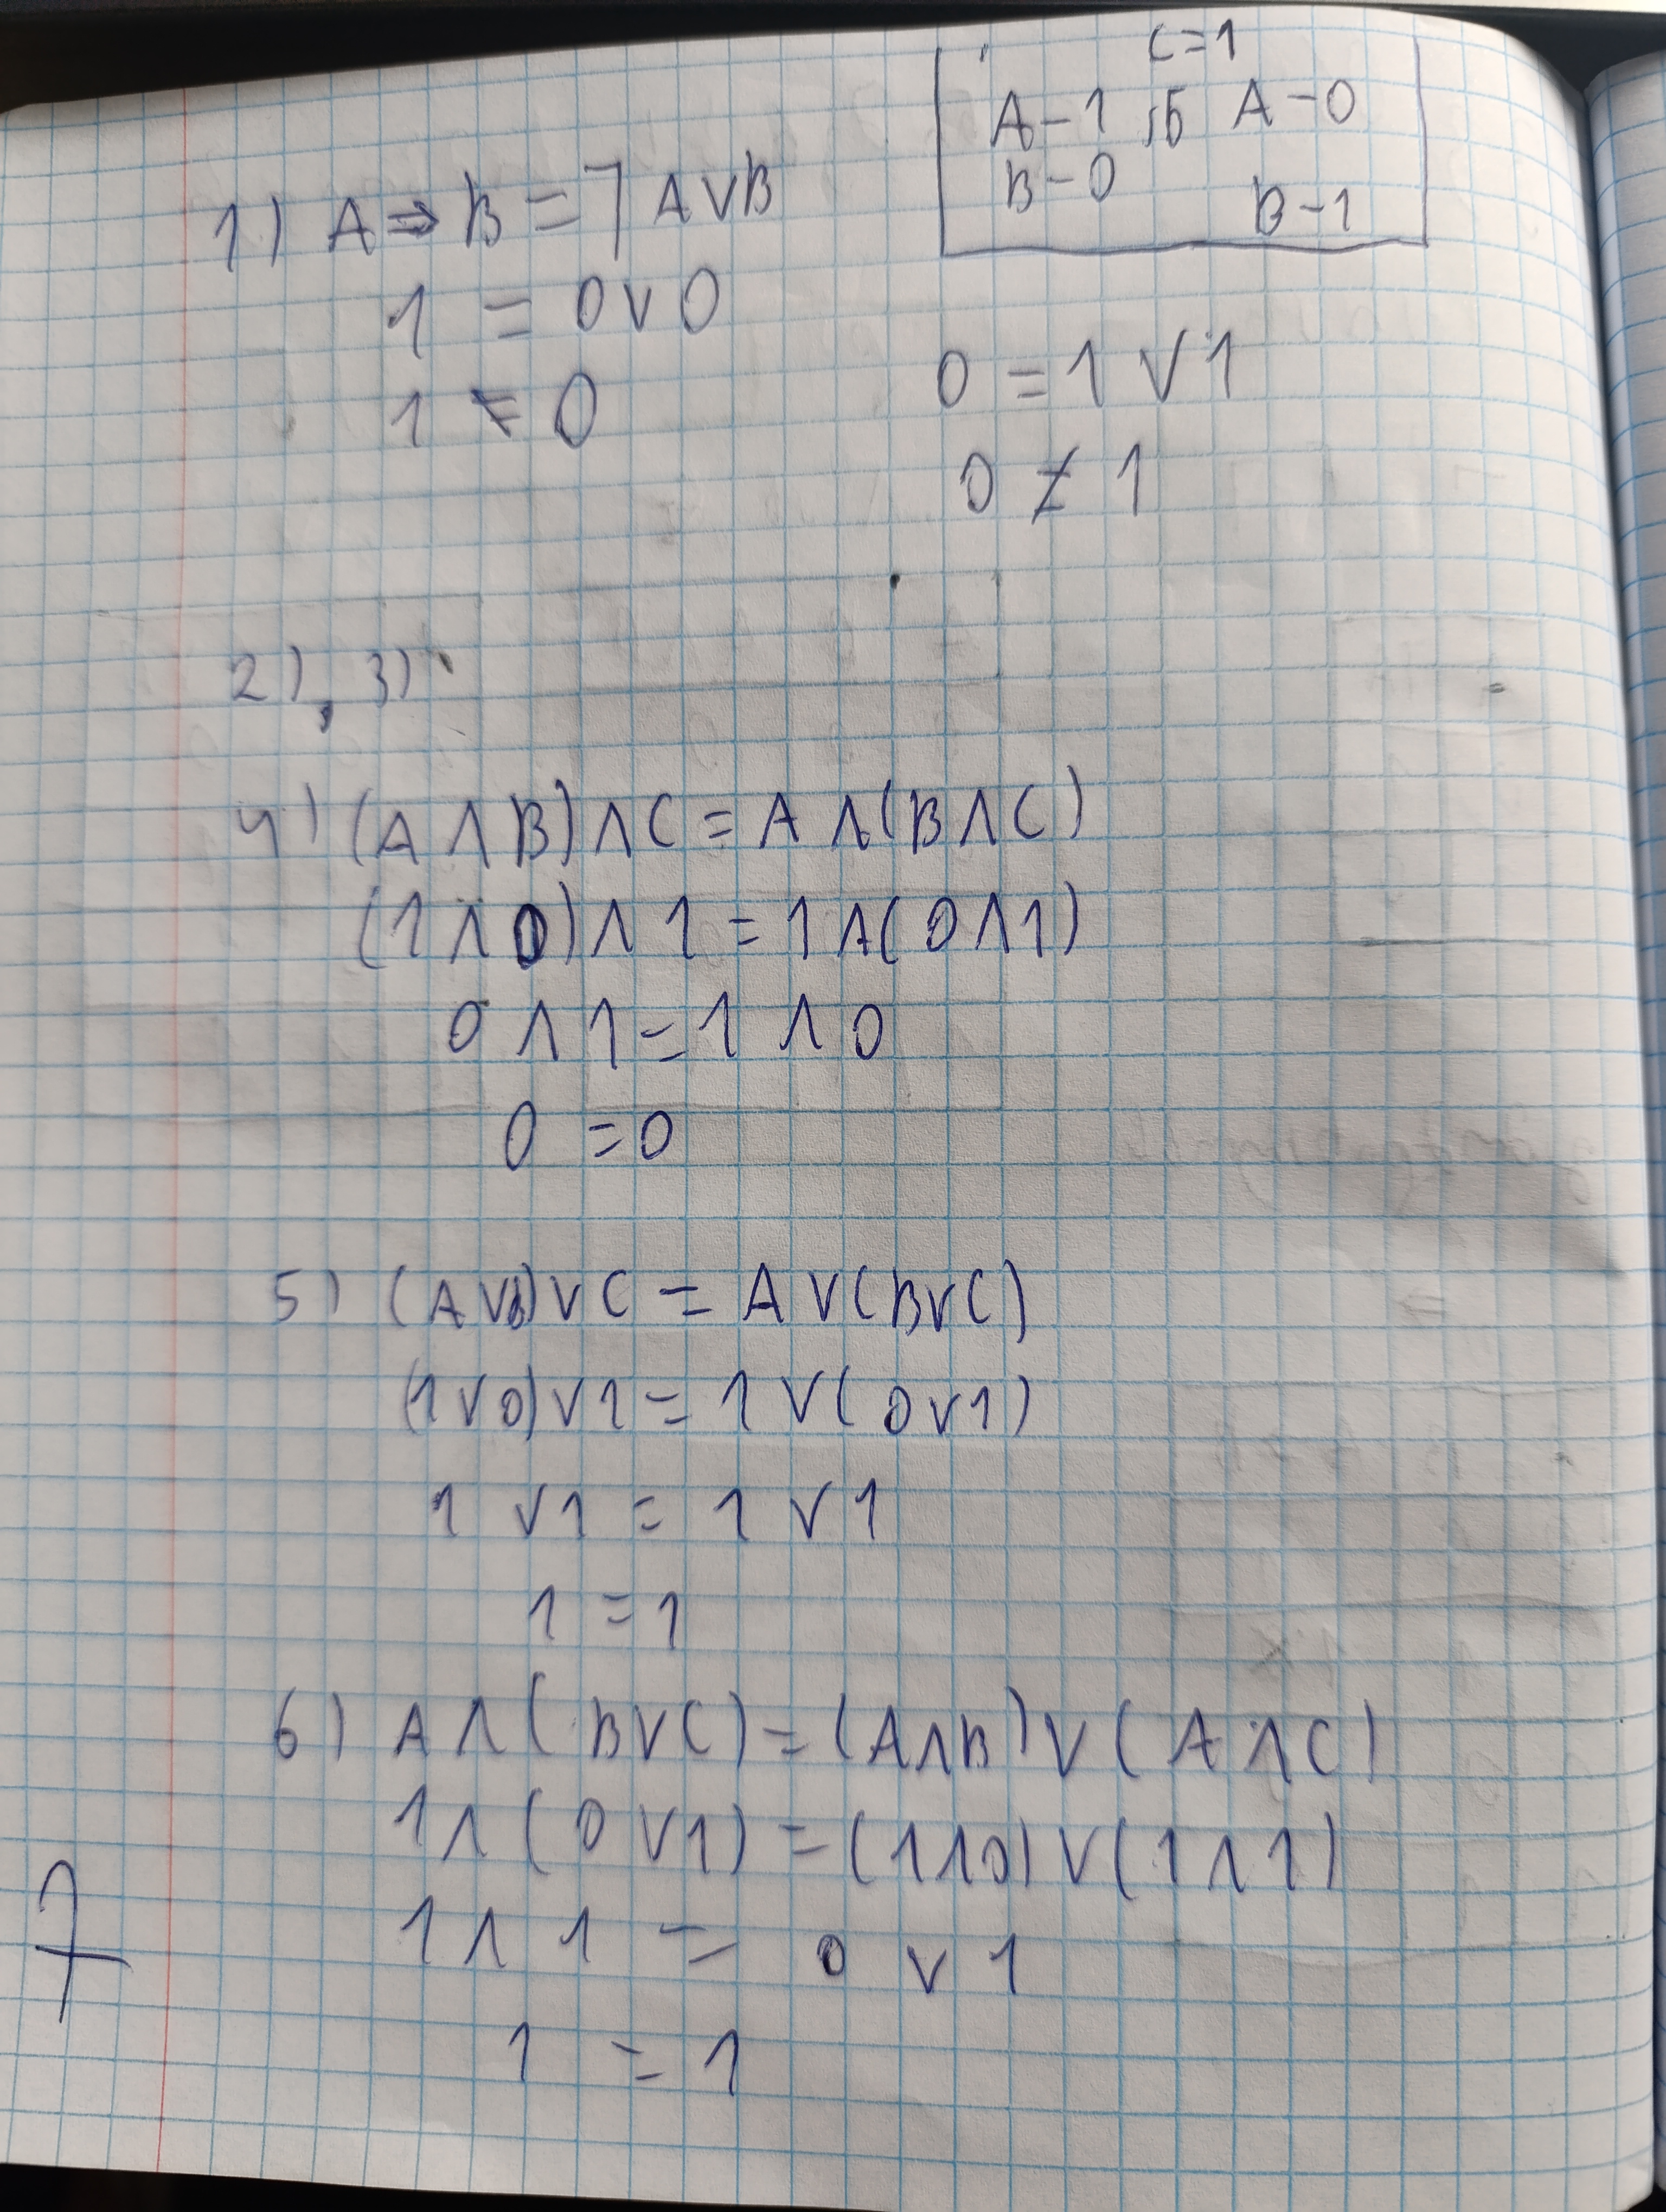 C=1
A-1 њб A-0
B-0
B-1
1) A⇒B=⅂A∨B
1 = 0∨0
1 ≠ 0
0 = 1 ∨ 1
0 ≠ 1
2), 3)
4) (A ∧ B)∧C = A ∧(B∧C)
(1∧0)∧ 1 = 1∧(0∧1)
0 ∧ 1 = 1 ∧ 0
0 = 0
5) (A∨B)∨C = A∨(B∨C)
(1∨0)∨1 = 1∨(0∨1)
1 ∨1 = 1 ∨ 1
1 = 1
6) A∧(B∨C)=(A∧B)∨(A∧C)
1∧(0∨1)=(1∧0)∨(1∧1)
1∧ 1 = 0 ∨ 1
1 = 1